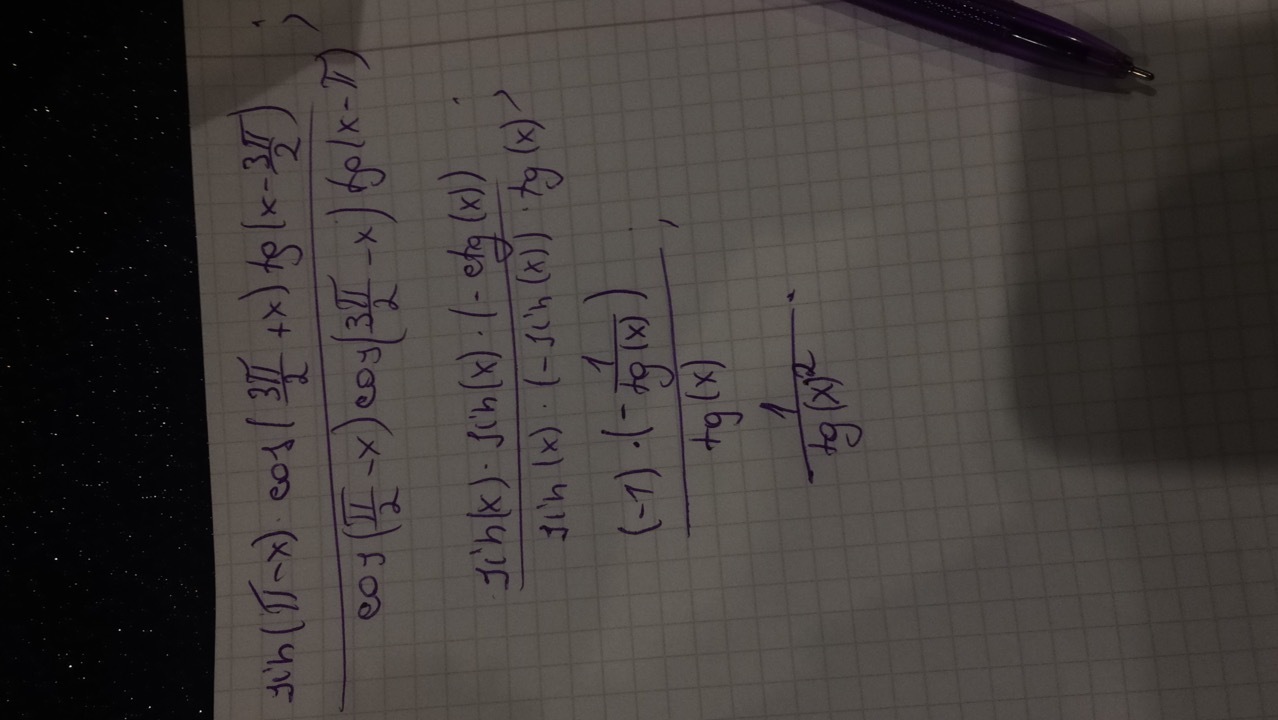 sin(π-x)·cos(3π/2+x)tg(x-3π/2)
cos(π/2-x)cos(3π/2-x)tg(x-π) ;
sin(x)·sin(x)·(-ctg(x))
sin(x)·(-sin(x))·tg(x) ;
(-1)·(-1/tg(x))
tg(x) ;
1
tg(x)² .